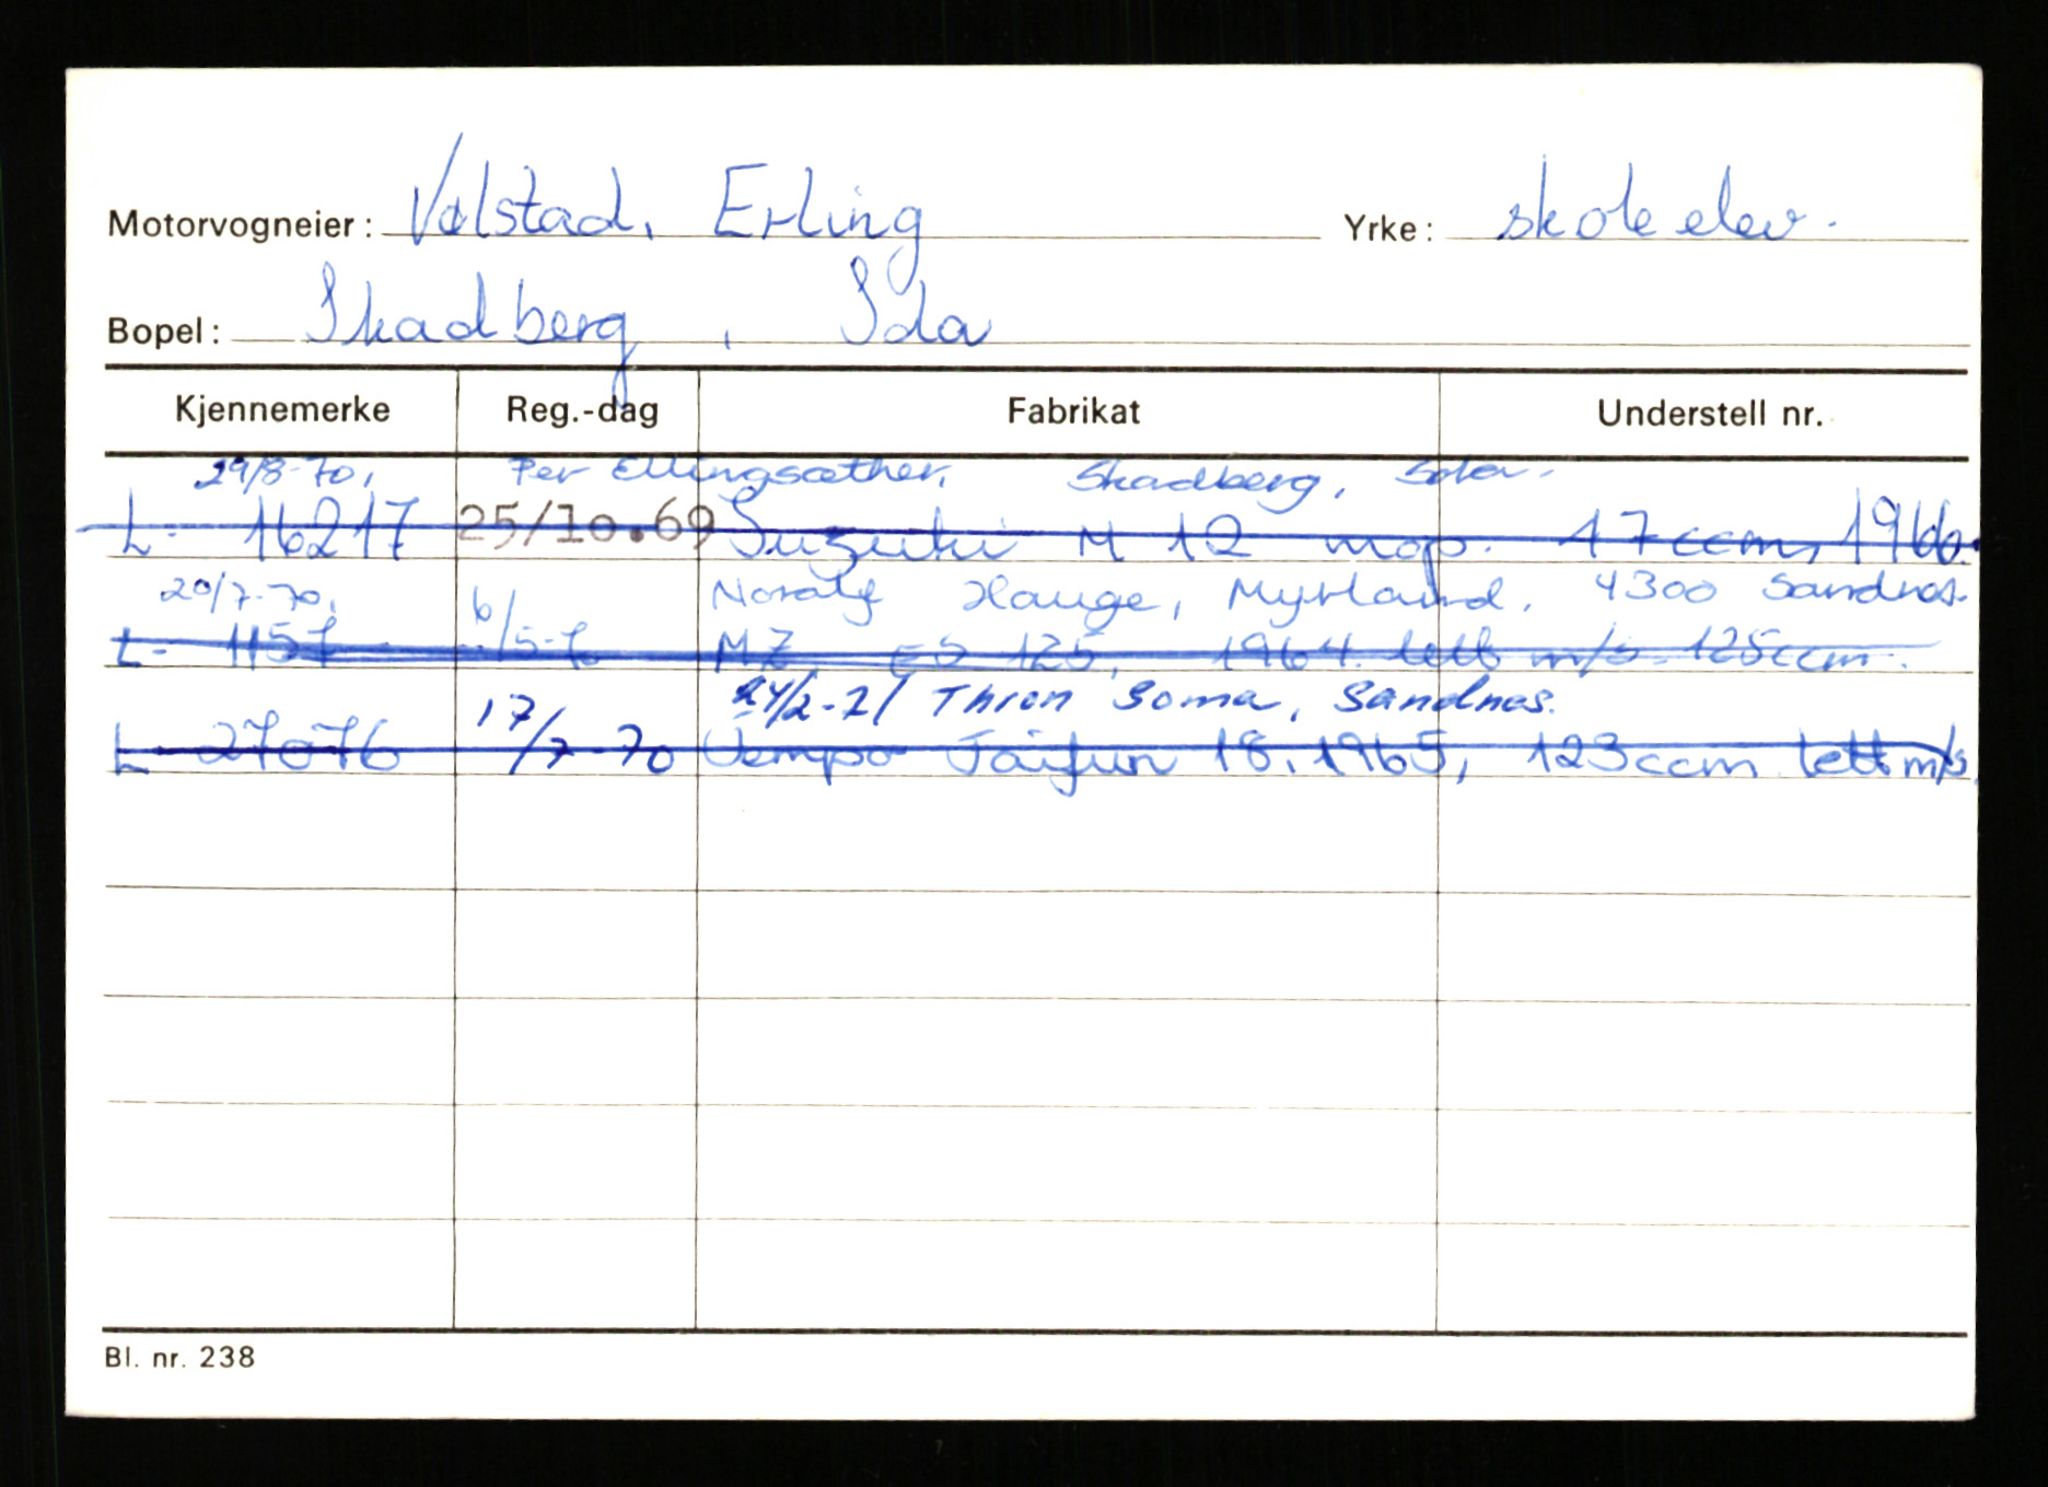 Motorvogneier: Valstad, Erling Yrke: skoleelev.
Bopel: Skadberg, Sola
Kjennemerke Reg.-dag Fabrikat Understell nr.
29/8-70, Per Ellingsæther, Skadberg, Sola.
L- 16217 25/10.69 Suzuki M 12 mop. 47ccm, 1966.
20/7-70, Noralf Hauge, Myrland, 4300 Sandnes.
L- 1157 6/5-70 MZ, ES 125, 1964. lett m/s. 125ccm.
24/2-71 Thron Soma, Sandnes.
L- 27076 17/7-70 Tempo Taifun 18. 1965, 123ccm lett m/s.
Bl. nr. 238